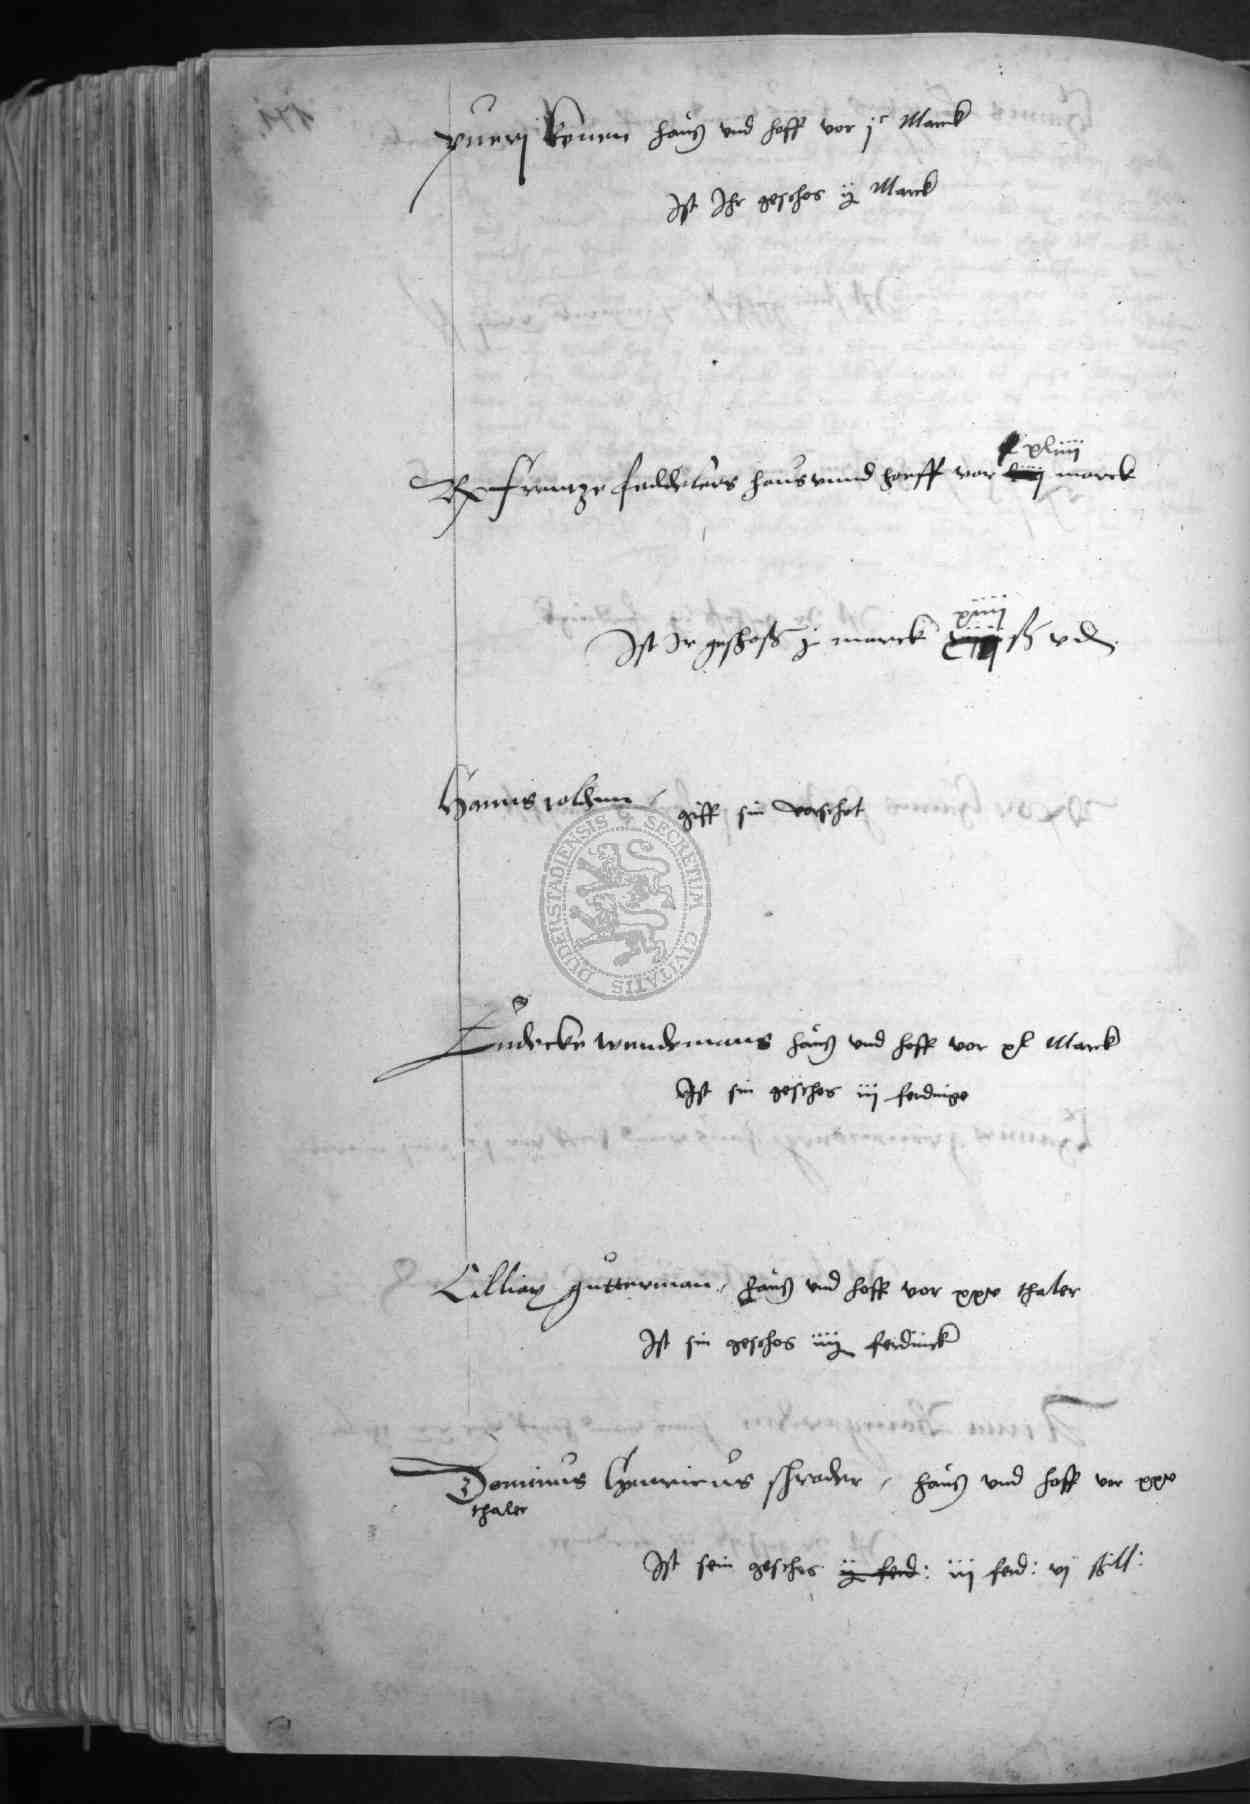 pueri konen hauß vnd hoff vor jc Marck
Ist Ihr geschos ij Marck
xliiij
Rx frantze feddelers haus vnnd hoeff vor marck
xiiij
Ist Ir geschoß j marck ß v d
Hannis giff sin vorschot
DUDERSTADIENSIS SECRETUM CIVITATIS
Endecke wendemans hauß vnd hoff vor xl Marck
Ist sin geschos iij ferdinge
Cilliax gutterman, hauß vnd hoff vor xxxv thaler
Ist sin geschos iiij ferdinck
Dominus Henricus schrader, hauß vnd hoff vor xxxv
thaler
Ist sein geschos ij ferd: iij ferd: vj ßill: